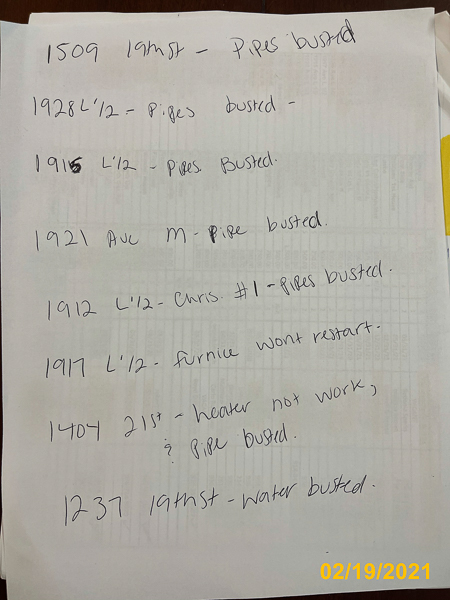 1509 19thst - Pipes busted
1928 L'1/2 - Pipes busted -
1915 L'1/2 - Pipes Busted.
1921 Ave M - Pipe busted.
1912 L'1/2 - Chris. #1 - pipes busted.
1917 L'1/2 - furnice wont restart.
1404 21st - heater not work,
& pipe busted.
1237 19thst - water busted.
02/19/2021